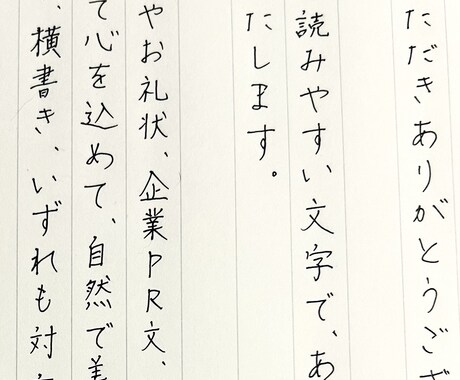 ただきありがとうござ
読みやすい文字で、あ
たします。
やお礼状、企業PR文、
て心を込めて、自然で美
、横書き、いずれも対